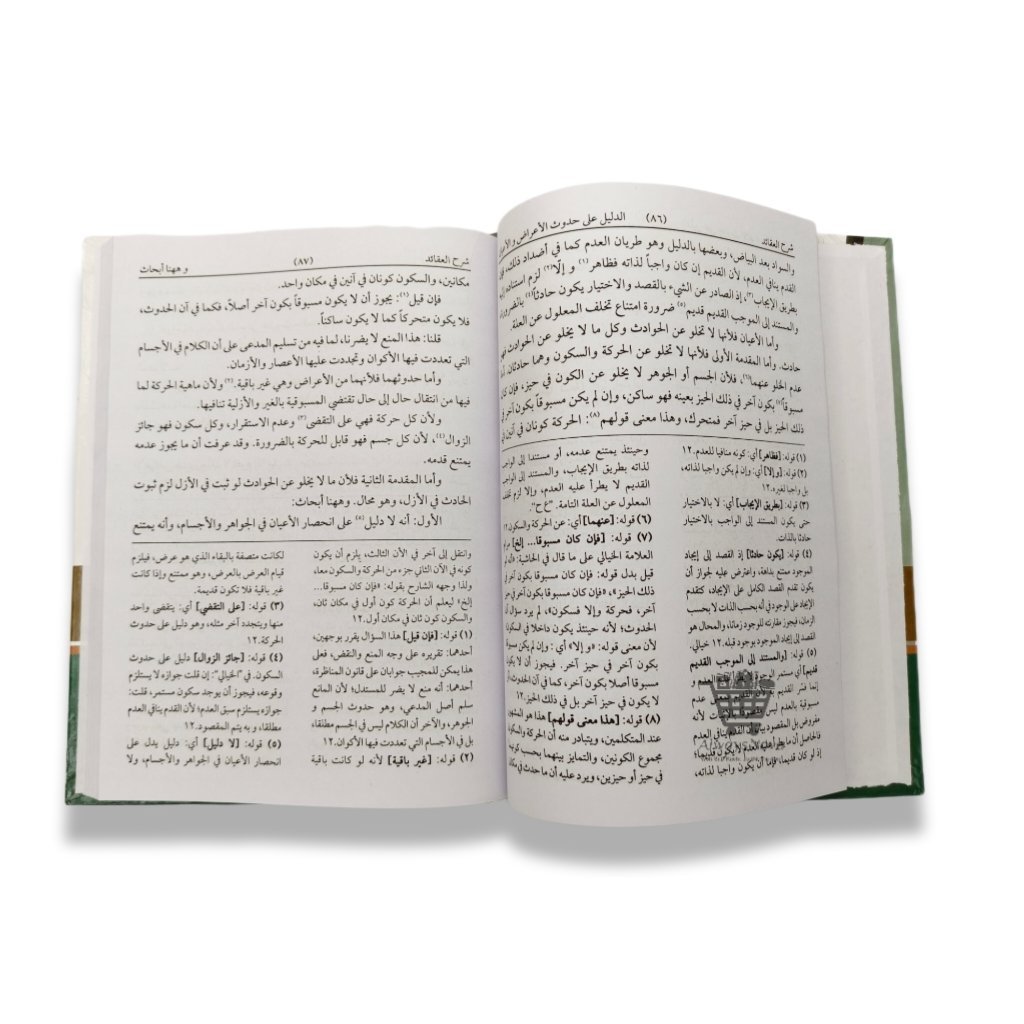 شرح العقائد (٨٦) الدليل على حدوث الأعراض و
والسواد بعد البياض، وبعضها بالدليل وهو طريان العدم كما في أضداد ذلك، فإن
القدم ينافي العدم، لأن القديم إن كان واجباً لذاته فظاهر(١) و إلّا(٢) لزم استناده
بطريق الإيجاب(٣)، إذ الصادر عن الشيء بالقصد والاختيار يكون حادثاً(٤) بالضرورة
والمستند إلى الموجب القديم قديم(٥) ضرورة امتناع تخلف المعلول عن العلة.
وأما الأعيان فلأنها لا تخلو عن الحوادث وكل ما لا يخلو عن الحوادث فهو
حادث، وأما المقدمة الأولى فلأنها لا تخلو عن الحركة والسكون وهما حادثان. أما
عدم الخلو عنهما(٦)، فلأن الجسم أو الجوهر لا يخلو عن الكون في حيز، فإن كان
مسبوقاً(٧) بكون آخر في ذلك الحيز بعينه فهو ساكن، وإن لم يكن مسبوقاً بكون آخر في
ذلك الحيز بل في حيز آخر فمتحرك، وهذا معنى قولهم(٨): الحركة كونان في آنين في
(١) قوله: [فظاهر] أي: كونه منافيا للعدم.١٢
(٢) قوله: [و إلا] أي: وإن لم يكن واجبا لذاته،
بل واجبا لغيره.١٢
(٣) قوله: [بطريق الإيجاب] أي: لا بالاختيار
حتى يكون المستند إلى الواجب بالاختيار
حادثا بالذات.
(٤) قوله: [يكون حادثا] إذ القصد إلى إيجاد
الموجود ممتنع بداهة، واعترض عليه لجواز أن
يكون تقدم القصد الكامل على الإيجاد، كتقدم
الإيجاد على الوجود في أنه بحسب الذات لا بحسب
الزمان، فيجوز مقارنته للوجود زمانا، والمحال هو
القصد إلى إيجاد الموجود بوجود قبله.١٢ خيالي.
(٥) قوله: [والمستند إلى الموجب القديم
قديم] أي مستمر الوجود
إنما فسّر القديم
مسبوقية بالعدم ليس
مفروض بل المقصود بيان أن القدم ينافي العدم
فالحاصل أن ما يطرأ عليه العدم لا يكون قديما؛
إذ لو كان قديما، فإما أن يكون واجبا لذاته،
وحينئذ يمتنع عدمه، أو مستندا إلى الواجب
لذاته بطريق الإيجاب، والمستند إلى الواجب
القديم لا يطرأ عليه العدم، وإلا لزم تخلف
المعلول عن العلة التامة. "ع ح".
(٦) قوله: [عنهما] أي: عن الحركة والسكون.١٢
(٧) قوله: [فإن كان مسبوقا... إلخ]
العلامة الخيالي على ما قال في الحاشية:
قيل بدل قوله: «فإن كان مسبوقا بكون آخر في
ذلك الحيز»، «فإن كان مسبوقا بكون آخر في حيز
آخر، فحركة وإلا فسكون»، لم يرد سؤال آن
الحدوث؛ لأنه حينئذ يكون داخلا في السكون
لأن معنى قوله: «و إلا» أي: وإن لم يكن مسبوقا
بكون آخر في حيز آخر. فيجوز أن لا يكون
مسبوقا أصلا بكون آخر، كما في آن الحدوث، أو
لا يكون في حيز آخر بل في ذلك الحيز.١٢
(٨) قوله: [هذا معنى قولهم] هذا هو المشهور
عند المتكلمين، ويتبادر منه أن الحركة والسكون
مجموع الكونين، والتمايز بينهما بحسب كونهما
في حيز أو حيزين، ويرد عليه أن ما حدث في مكان
شرح العقائد (٨٧) و ههنا أبحاث
مكانين، والسكون كونان في آنين في مكان واحد.
فإن قيل(١): يجوز أن لا يكون مسبوقاً بكون آخر أصلاً، فكما في آن الحدوث،
فلا يكون متحركاً كما لا يكون ساكناً.
قلنا: هذا المنع لا يضرنا، لما فيه من تسليم المدعى على أن الكلام في الأجسام
التي تعددت فيها الأكوان وتجددت عليها الأعصار والأزمان.
وأما حدوثهما فلأنهما من الأعراض وهي غير باقية.(٢) ولأن ماهية الحركة لما
فيها من انتقال حال إلى حال تقتضي المسبوقية بالغير والأزلية تنافيها.
ولأن كل حركة فهي على التقضي(٣) وعدم الاستقرار، وكل سكون فهو جائز
الزوال(٤)، لأن كل جسم فهو قابل للحركة بالضرورة. وقد عرفت أن ما يجوز عدمه
يمتنع قدمه.
وأما المقدمة الثانية فلأن ما لا يخلو عن الحوادث لو ثبت في الأزل لزم ثبوت
الحادث في الأزل، وهو محال. وههنا أبحاث:
الأول: أنه لا دليل(٥) على انحصار الأعيان في الجواهر والأجسام، وأنه يمتنع
وانتقل إلى آخر في الآن الثالث، يلزم أن يكون
كونه في الآن الثاني جزء من الحركة والسكون معا،
ولذا وجهه الشارح بقوله: «فإن كان مسبوقا...
إلخ» ليعلم أن الحركة كون أول في مكان ثان،
والسكون كون ثان في مكان أول.١٢
(١) قوله: [فإن قيل] هذا السؤال يقرر بوجهين،
أحدهما: تقريره على وجه المنع والنقض، فعلى
هذا يمكن للمجيب جوابان على قانون المناظرة،
أحدهما: أنه منع لا يضر للمستدل؛ لأن المانع
سلم أصل المدعي، وهو حدوث الجسم و
الجوهر، والآخر أن الكلام ليس في الجسم مطلقا،
بل في الأجسام التي تعددت فيها الأكوان.١٢
(٢) قوله: [غير باقية] لأنه لو كانت باقية
لكانت متصفة بالبقاء الذي هو عرض، فيلزم
قيام العرض بالعرض، وهو ممتنع وإذا كانت
غير باقية فلا تكون قديمة.
(٣) قوله: [على التقضي] أي: ينقضي واحد
منها ويتجدد آخر مثله، وهو دليل على حدوث
الحركة.١٢
(٤) قوله: [جائز الزوال] دليل على حدوث
السكون. في "الخيالي": إن قلت جوازه لا يستلزم
وقوعه، فيجوز أن يوجد سكون مستمر، قلت:
جوازه يستلزم سبق العدم؛ لأن القدم ينافي العدم
مطلقا، و به يتم المقصود.١٢
(٥) قوله: [لا دليل] أي: دليل يدل على
انحصار الأعيان في الجواهر والأجسام، ولا